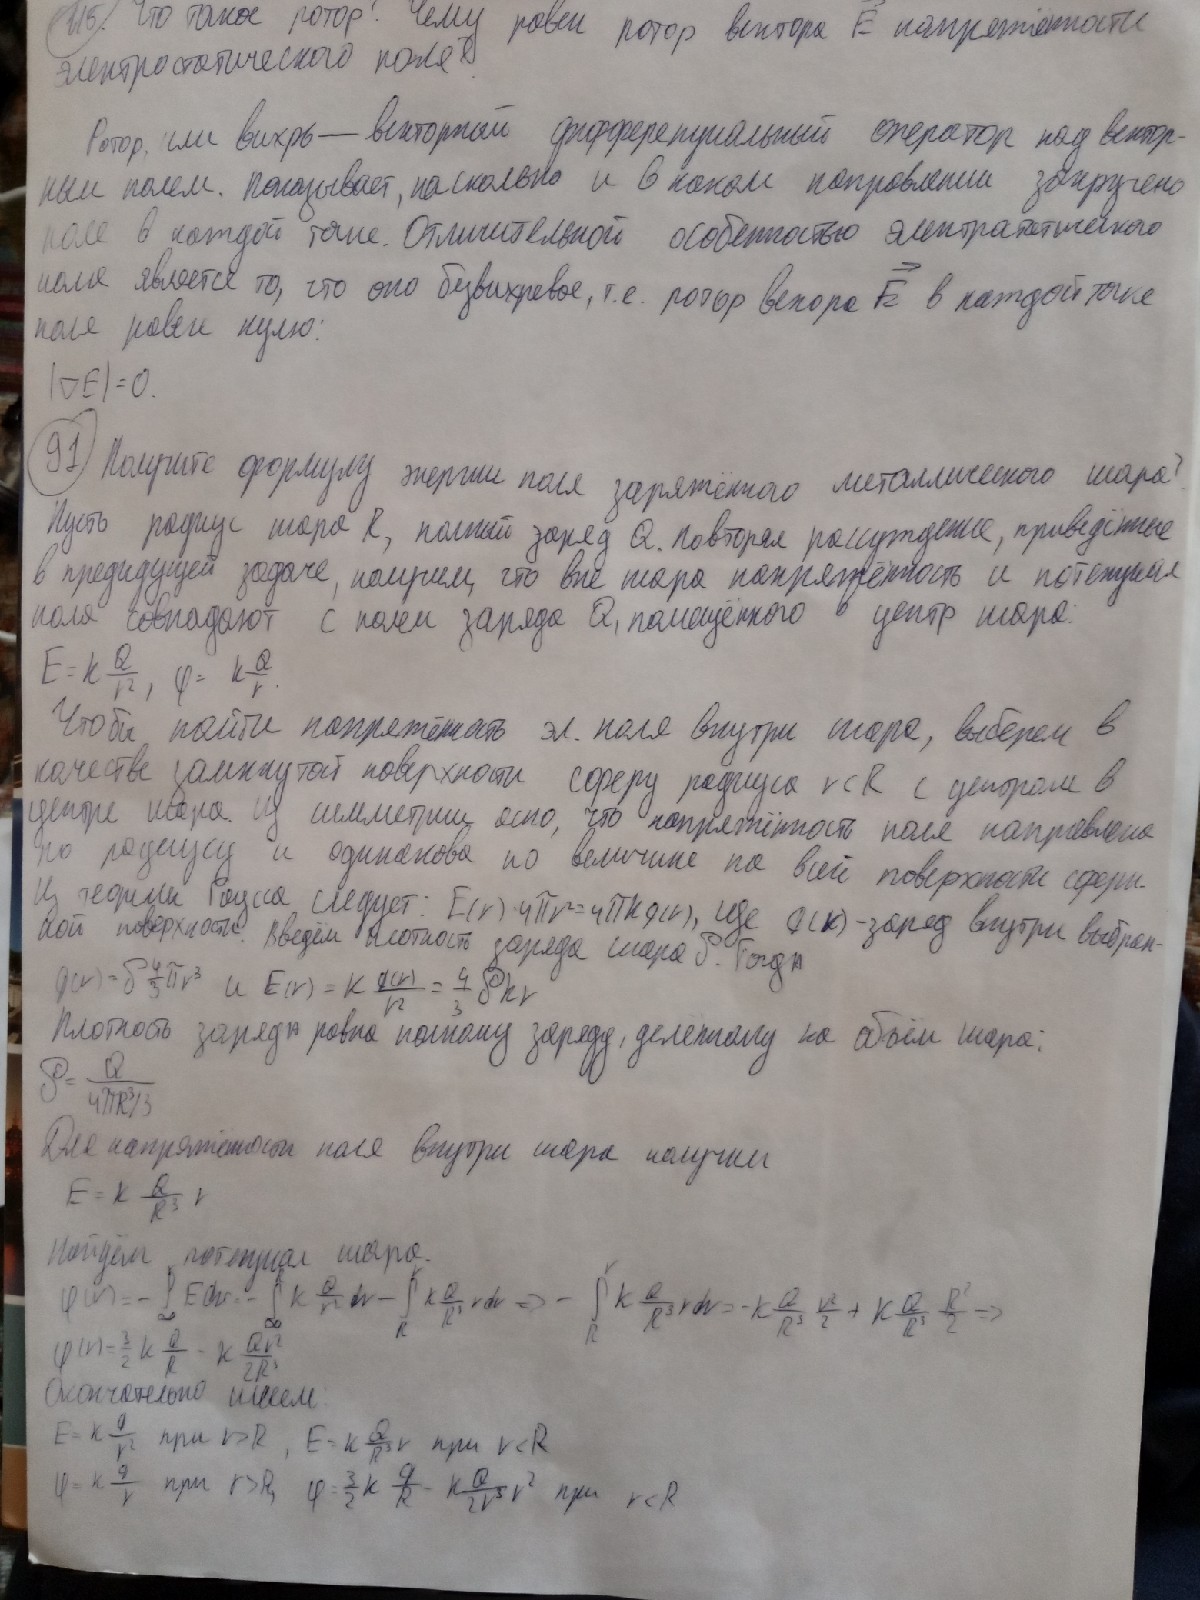 115. Что такое ротор? Чему равен ротор вектора E⃗ напряжённости
электростатического поля?
Ротор, или вихрь — векторный дифференциальный оператор над вектор-
ным полем. Показывает, насколько и в каком направлении закручено
поле в каждой точке. Отличительной особенностью электрататического
поля является то, что оно безвихревое, т.е. ротор векора E⃗ в каждой точке
поля равен нулю:
|∇E|=0.
91 Получите формулу энергии поля заряжённого металлического шара?
Пусть радиус шара R, полный заряд Q. Повторяя рассуждения, приведённые
в предидущей задаче, получим, что вне шара напряжённость и потенциал
поля совпадают с полем заряда Q, помещённого в центр шара:
E = k Q/r², φ = k Q/r.
Чтобы найти напряжённость эл. поля внутри шара, выберем в
качестве замкнутой поверхности сферу радиуса r<R с центром в
центре шара. Из симметрии ясно, что напряжённость поля направлена
по радиусу и одинакова по величине на всей поверхности сферы.
Из теоремы Гаусса следует: E(r)·4πr²=4πkq(r), где q(r)-заряд внутри выбран-
ной поверхности. Введём плотность заряда шара ρ. Тогда
q(r)=ρ 4/3 πr³ и E(r) = k q(r)/r² = 4/3 ρkr
Плотность заряда равна полному заряду, деленному на объём шара:
ρ = Q/(4πR³/3)
Для напряжённости поля внутри шара получим
E = k Q/R³ r
Найдём потенциал шара.
φ(r) = -∫_∞^r Edr = -∫_∞^R k Q/r² dr - ∫_R^r k Q/R³ rdr => - ∫_R^r k Q/R³ rdr = -k Q/R³ r²/2 + k Q/R³ R²/2 =>
φ(r) = 3/2 k Q/R - k Qr²/2R³
Окончательно имеем:
E = k q/r² при r>R, E = k Q/R³ r при r<R
φ = k q/r при r>R, φ = 3/2 k q/R - k Q/2r³ r² при r<R